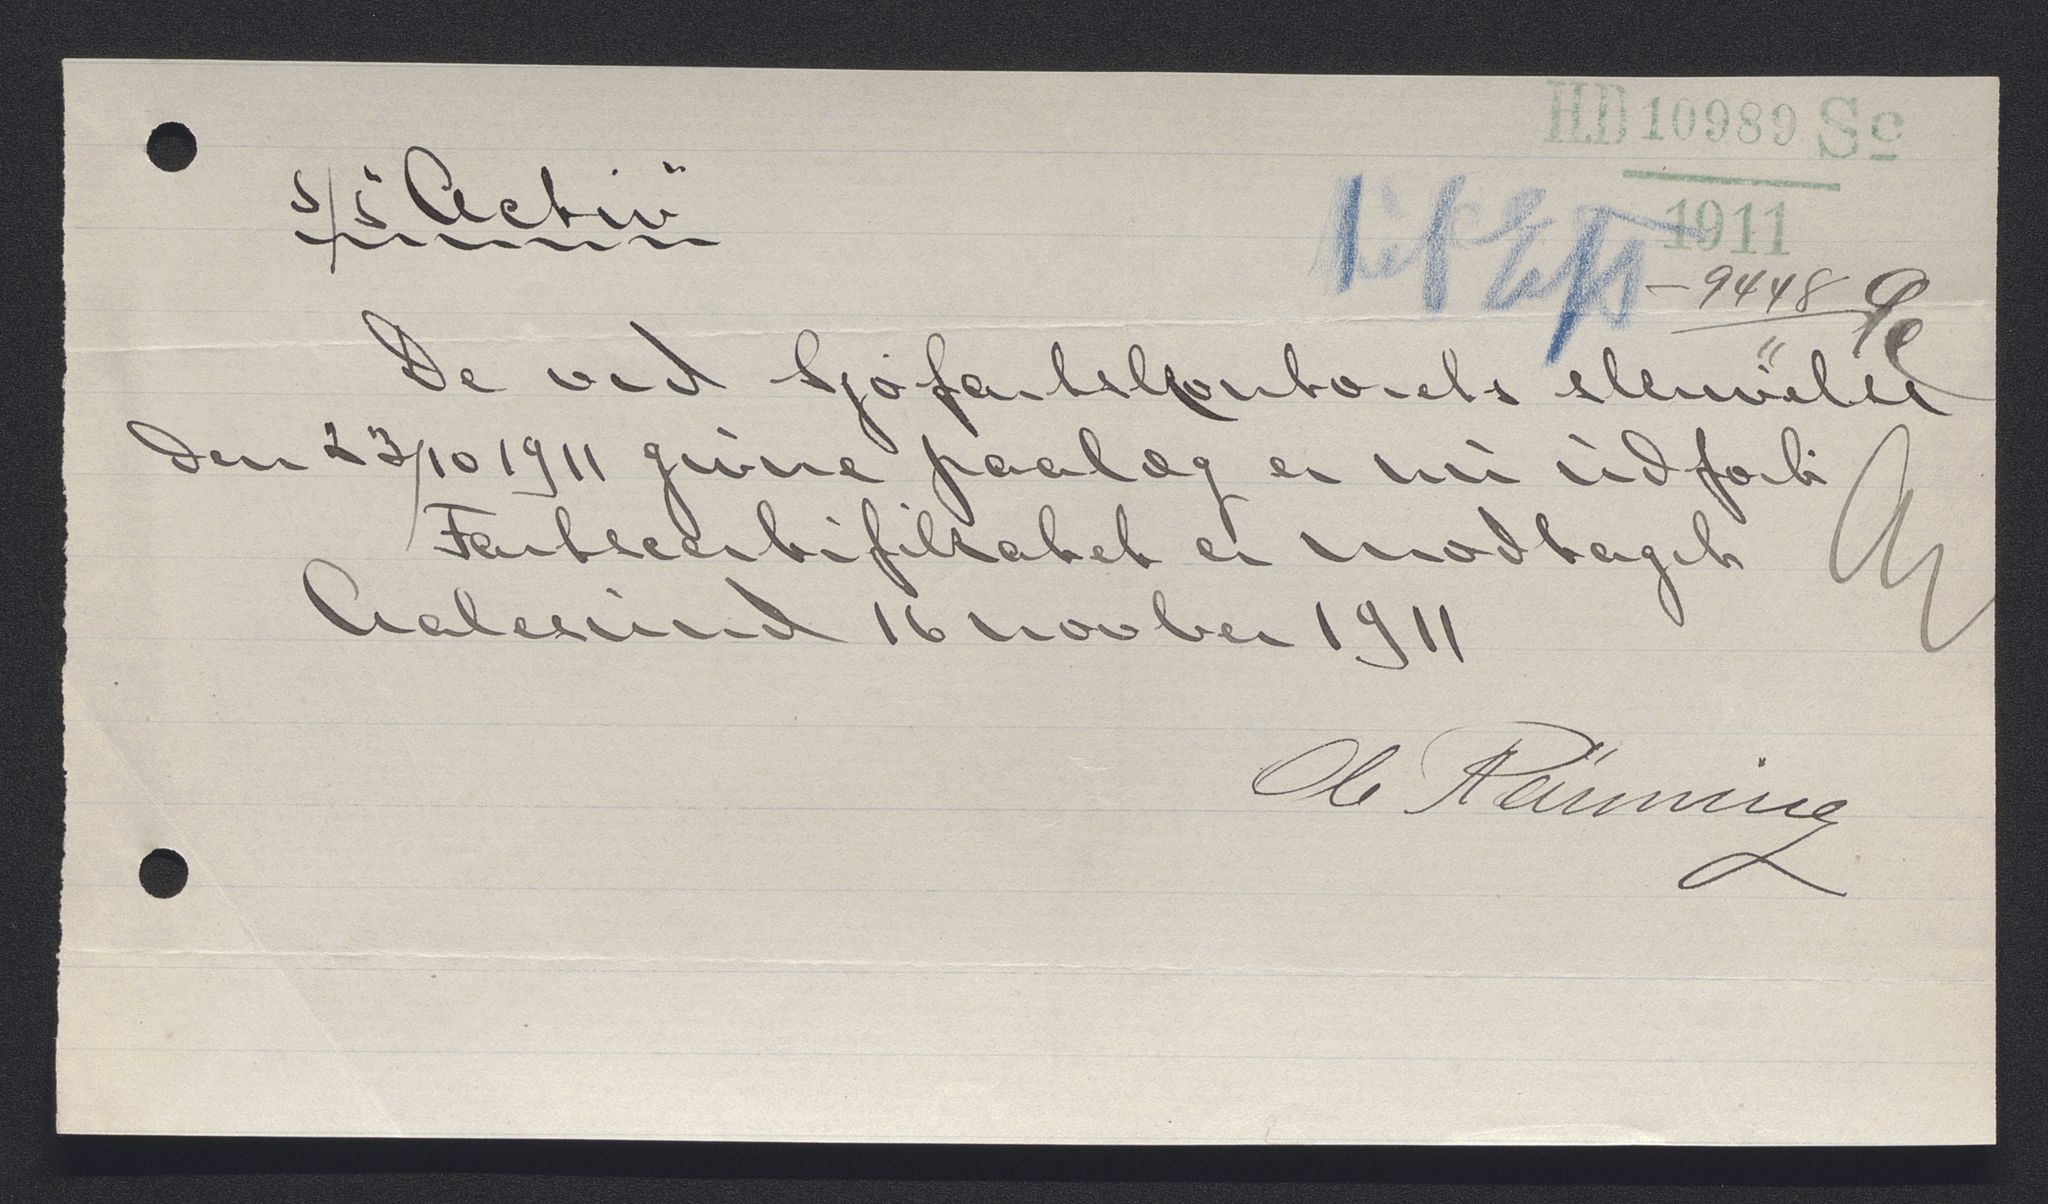 HD 10989 Sc
1911
- 9448
s/s "Activ"
De ved Sjøfartskontorets skrivelse
den 23/10 1911 givne paalæg er nu udført
Fartscertifikatet er modtaget
Aalesund 16 novber 1911
Ole Rønning